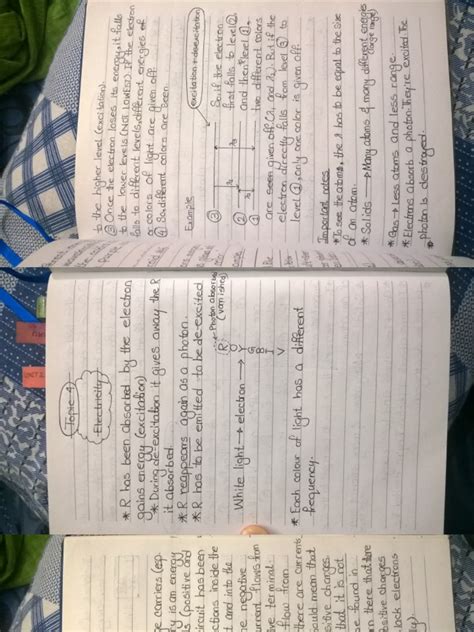 to the higher level (excitation).
③ Once the electron loses its energy, it falls
to the lower levels (NOT LOWER). If the electron
falls to different levels, different energies of
or colors of light are given off.
④ So, different colors are been.
Example
excitation + deexcitation
③
②
①
So, if the electron
that falls to level ②,
and then level ①,
two different colors
are seen given off (λ₁ and λ₂). But if the
electron directly falls from level ③ to
level ①, only one color is given off.
Important notes
* To see the atoms, the λ has to be equal to the size
of an atom.
* Solids → Many atoms & many different energies
(large range)
* Gas → Less atoms and less range.
* Electrons absorb a photon. They're excited. The
photon is destroyed.
Topic 4
Electricity
* R has been absorbed by the electron
gains energy (excitation)
* During de-excitation it gives away the R
it absorbed.
* R reappears again as a photon.
* R has to be emitted to be de-excited
Photon absorbed
(vanishes)
White light → electron →
R
O
Y
G
B
I
V
* Each colour of light has a different
frequency.
ge carriers (eg.
y is an energy
is (positive and
ircuit has been
ctions inside the
t and into the
e negative
urrent flows from
ve terminal
flow from
there are currents
ould mean that
sitive charges
that it is not
be found in
n there that there
sitive charges
lack electrons